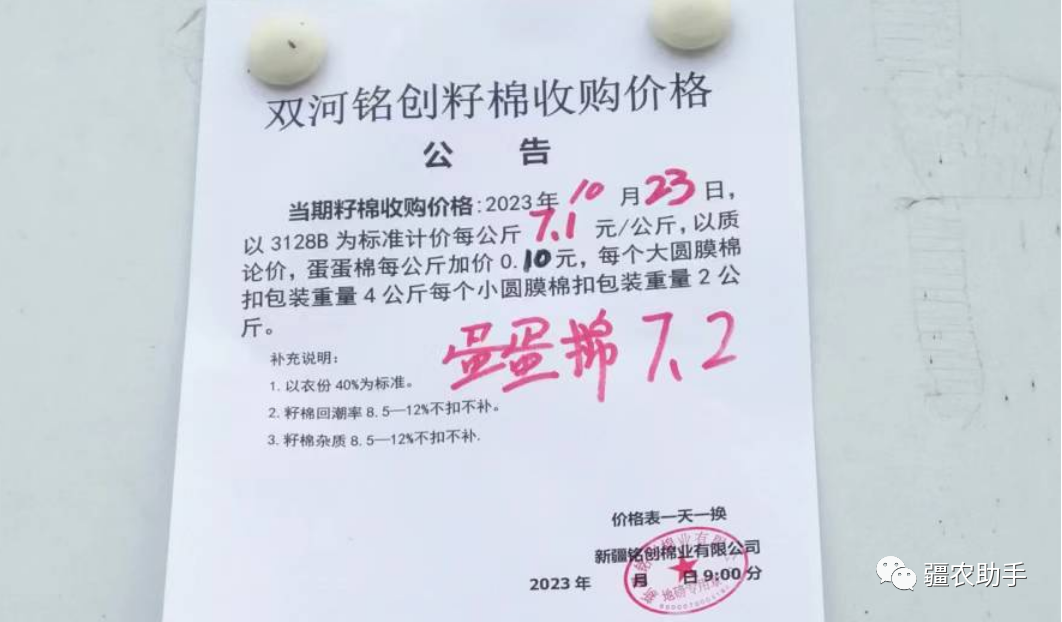 双河铭创籽棉收购价格
公 告
当期籽棉收购价格:2023年 10 月 23 日,
以 3128B 为标准计价每公斤 7.1 元/公斤, 以质
论价, 蛋蛋棉每公斤加价 0.10元, 每个大圆膜棉
扣包装重量 4 公斤每个小圆膜棉扣包装重量 2 公
斤。
蛋蛋棉 7.2
补充说明:
1. 以衣份 40%为标准。
2. 籽棉回潮率 8.5—12%不扣不补。
3. 籽棉杂质 8.5—12%不扣不补.
价格表一天一换
新疆铭创棉业有限公司
2023 年 月 日 9:00 分
地磅专用章
疆农助手